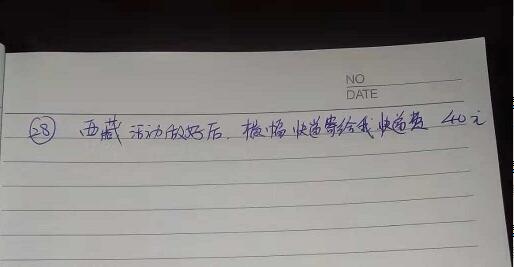 NO
DATE
㉘ 西藏 活动做好后. 横幅 快递寄给我 快递费 40元